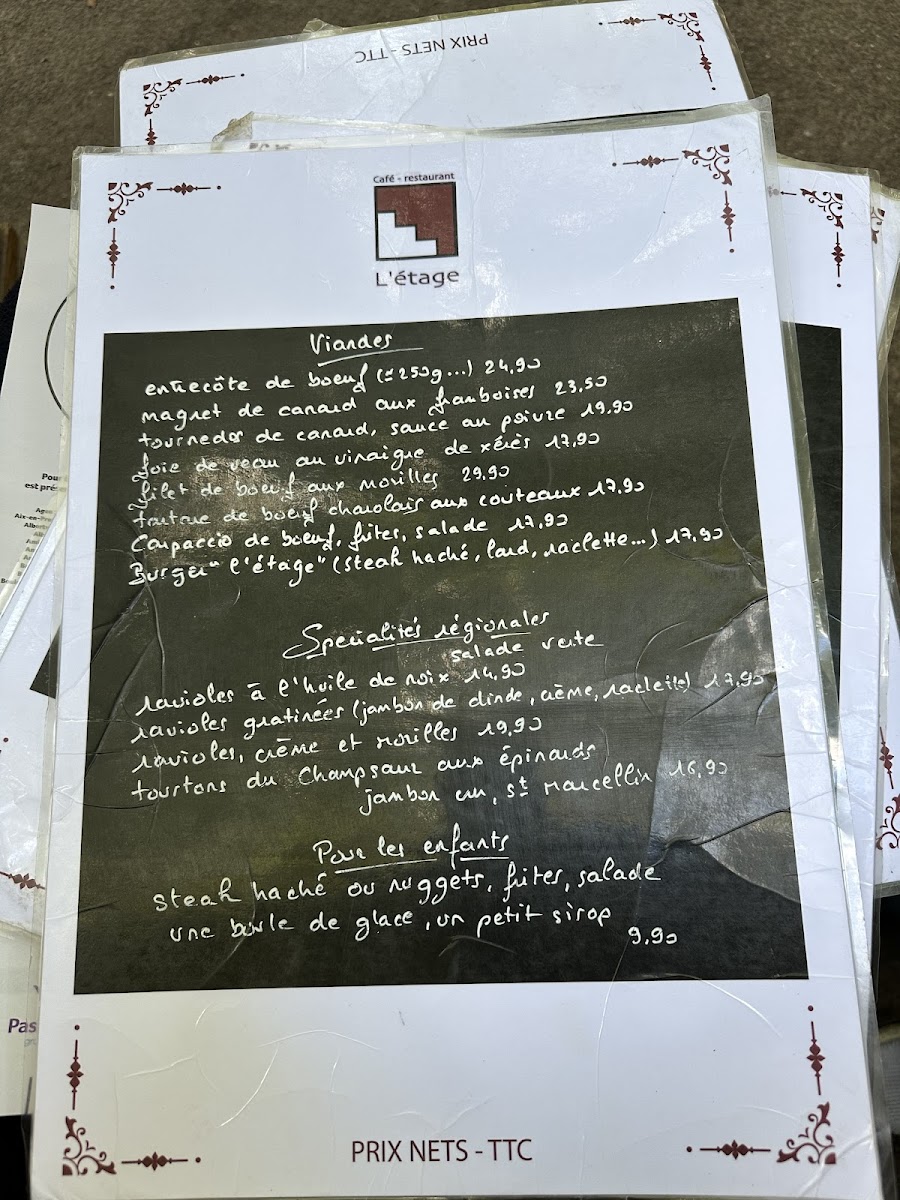 PRIX NETS - TTC
Café - restaurant
L'étage
Viandes
entrecôte de boeuf (≃250g...) 24,90
magret de canard aux framboises 23,50
tournedos de canard, sauce au poivre 19,90
foie de veau au vinaigre de xérès 17,90
filet de boeuf aux morilles 29,90
tartare de boeuf charolais aux couteaux 17,90
Carpaccio de boeuf, frites, salade 17,90
Burger "l'étage" (steak haché, lard, raclette...) 17,90
Spécialités régionales
salade verte
ravioles à l'huile de noix 14,90
ravioles gratinées (jambon de dinde, crème, raclette) 17,90
ravioles, crème et morilles 19,90
tourtons du Champsaur aux épinards
jambon cru, St marcellin 16,90
Pour les enfants
steak haché ou nuggets, frites, salade
une boule de glace, un petit sirop
9,90
PRIX NETS - TTC
Pas